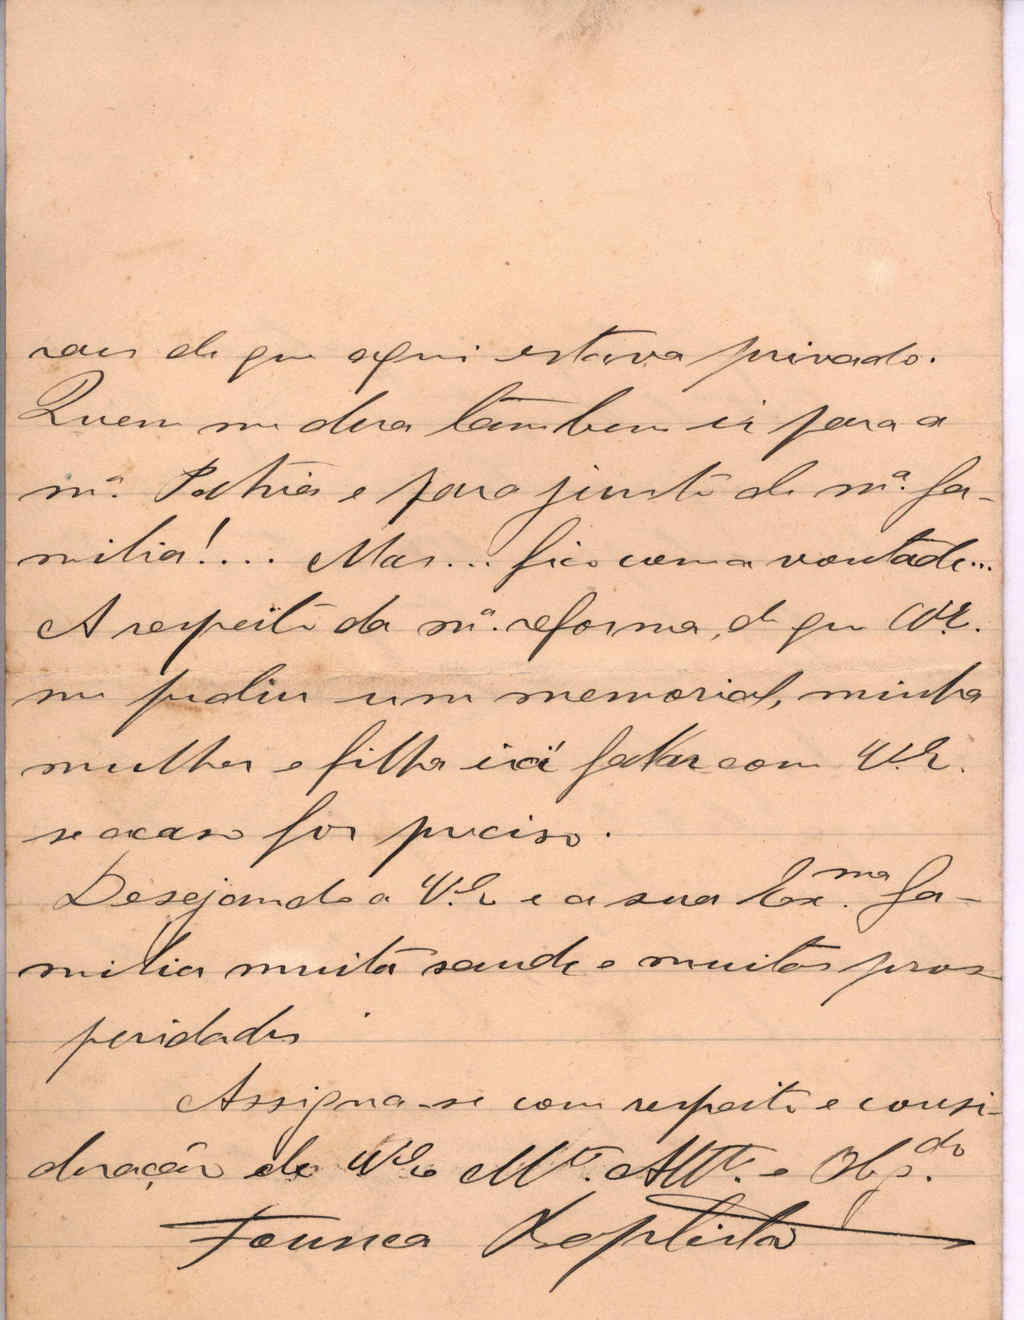 raes de que aqui estava privado.
Quem me dera tãmbem ir para a
mª. Patria e para junto de mª. fa-
milia!.... Mas... fico com a vontade...
A respeito da mª. reforma, de que V.E.
me pediu um memorial, minha
mulher e filha irá fallar com V.E.
se acaso for preciso.
Desejando a V.E e a sua Ex.ma fa-
milia muita saude e muitas pros
peridades
Assigna-se com respeito e consi-
deração de V.E. Mto. Attº. e Obg.do
Fonseca Baptista